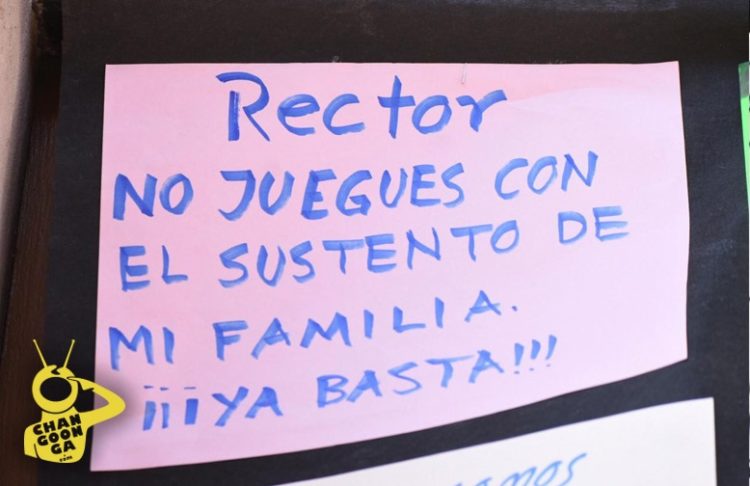 Rector
NO JUEGUES CON
EL SUSTENTO DE
MI FAMILIA.
¡¡¡YA BASTA!!!
CHAN
GOON
GA
.com